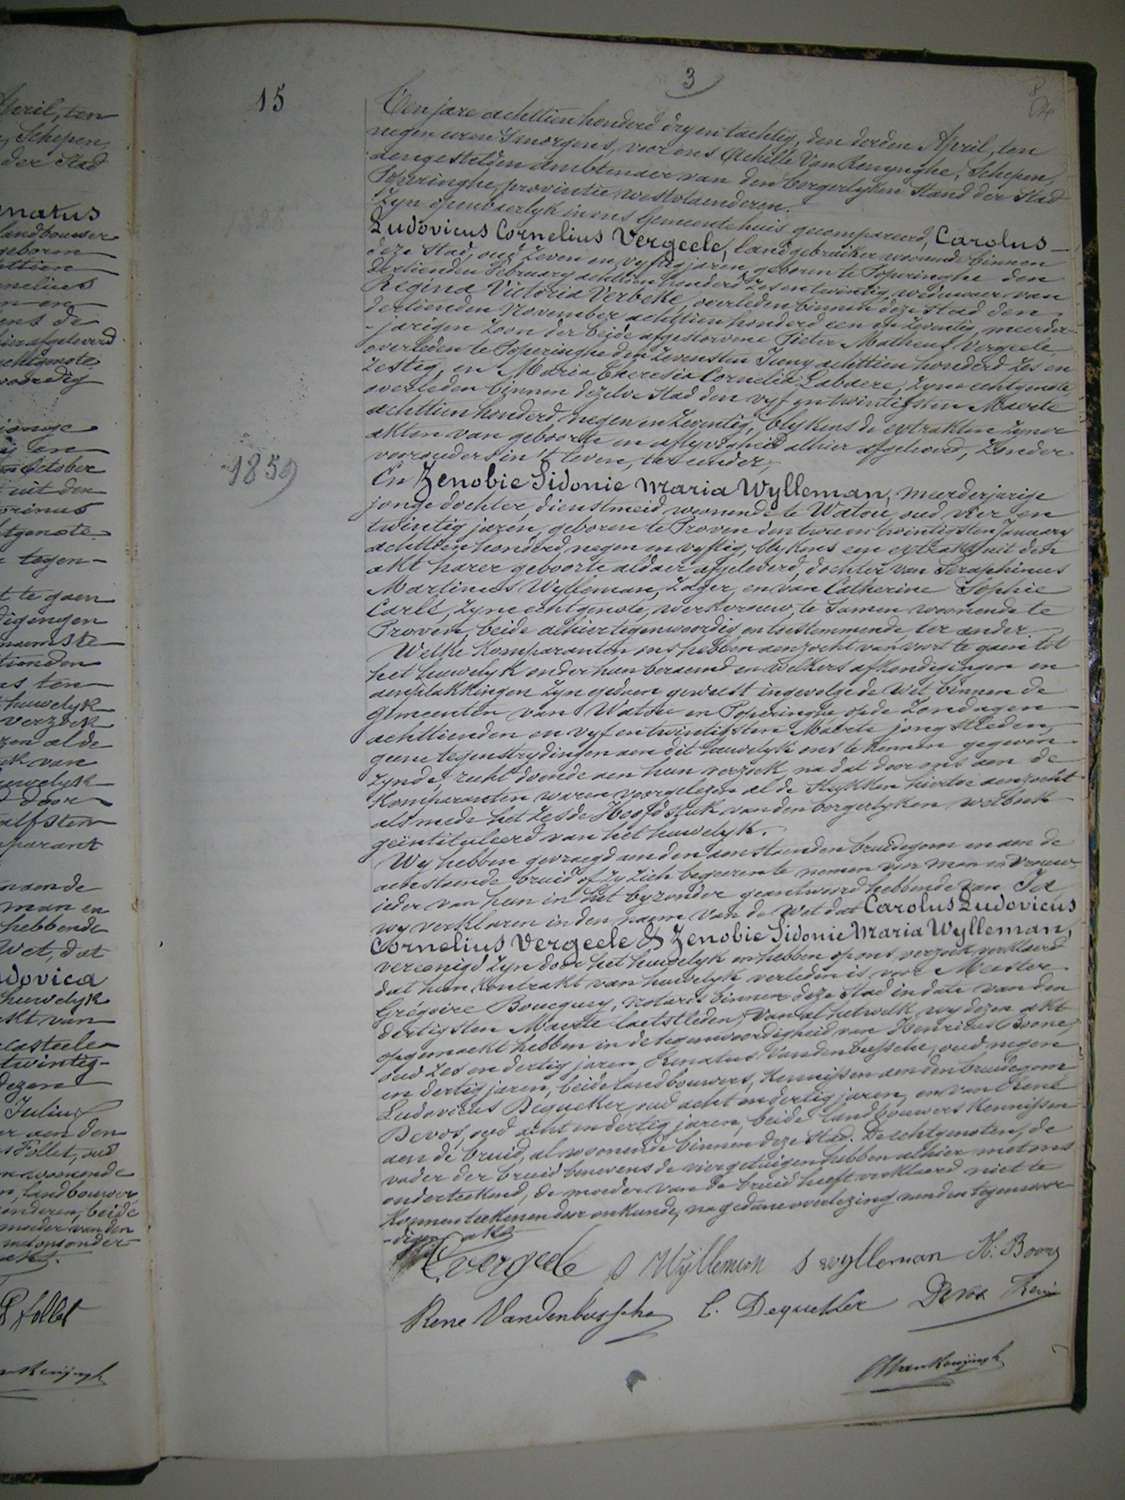 3
15
Den jare achttien honderd dry en tachtig, den derden April, ten
negen uren 's morgens, voor ons Achille Van Renynghe, Schepen,
aengestelden ambtenaer van den borgerlyken stand der Stad
Poperinghe, provintie westvlaenderen.
Zyn openbaerlyk in ons gemeentehuis gecompareerd, Carolus
Ludovicus Cornelius Vergeele, landgebruiker woonende binnen
deze Stad, oud zeven en vyftig jaren, geboren te Poperinghe den
dertienden February achttien honderd zes en twintig, weduwaer van
Regina Victoria Verbeke, overleden binnen deze Stad den
dertienden November achttien honderd een en zeventig, meerder-
-jarigen zoon der beide afgestorvene Pieter Matheus Vergeele,
overleden te Poperinghe den zevensten Juny achttien honderd zes en
zestig, en Maria Theresia Cornelia Labaere, zyne echtgenote,
overleden binnen dezelve Stad den vyf en twintigsten Maerte
achttien honderd negen en zeventig, blykens de extrakten zyner
akten van geboorte en aflyvigheid alhier afgeleverd, zonder
voorouders in 't leven, ter eender;
1859
En Zenobie Sidonie Maria Wylleman, meerderjarige
jonge dochter, dienstmeid, woonende te Watou, oud vier en
twintig jaren, geboren te Proven den twee en twintigsten January
achttien honderd negen en vyftig, blykens een extrakt uit den
akt harer geboorte aldaer afgeleverd, dochter van Seraphinus
Martinus Wylleman, Zager, en van Catherine Sophie
Carle, zyne echtgenote, werkvrouw, te samen woonende te
Proven, beide alhier tegenwoordig en toestemmende, ter ander.
Welke komparanten ons hebben aenzocht van voort te gaen tot
het huwelyk onder hun beraemd en welkers afkondigingen en
aenplakkingen zyn gedaen geweest ingevolge de wet binnen de
gemeenten van Watou en Poperinghe op de Zondagen
achttienden en vyf en twintigsten Maerte jongstleden,
geene tegenstrydingen aen dit huwelyk ons te kennen gegeven
zynde, recht doende aen hun verzoek, na dat door ons aen de
komparanten waren voorgelezen al de stukken hiertoe aenzocht
als mede het zesde Hoofdstuk van den borgerlyken wetboek
geïntituleerd van het huwelyk.
Wy hebben gevraegd aen den aenstaenden bruidegom en aen de
aenstaende bruid of zy zich begeeren te nemen voor man en vrouw
ieder van hun in het byzonder geantwoord hebbende van Ja
wy verklaren in den name van de wet dat Carolus Ludovicus
Cornelius Vergeele & Zenobie Sidonie Maria Wylleman,
vereenigd zyn door het huwelyk en hebben op ons verzoek verklaerd
dat hun kontrakt van huwelyk verleden is voor Meester
Grégoire Boucquey, notaris binnen deze Stad in date van den
dertigsten Maerte laetstleden; Van al hetwelk wy dezen akt
opgemaekt hebben in de tegenwoordigheid van Henricus Boone,
oud zes en dertig jaren, Renatus Vandenbussche, oud negen
en dertig jaren, beide landbouwers, kennissen aen den bruidegom
Ludovicus Dequeker, oud acht en dertig jaren, en van René
Devos, oud acht en dertig jaren, beide landbouwers kennissen
aen de bruid, al woonende binnen deze Stad. De echtgenoten, de
vader der bruid benevens de vier getuigen hebben alhier met ons
onderteekend, de moeder van de bruid heeft verklaerd niet te
konnen teekenen door onkunde, na gedane voorlezing van den tegenwoor-
-digen akt
C Vergeele S Wylleman S Wylleman H. Boone
Rene Vandenbussche L. Dequeker Devos Rene
A Van Renynghe